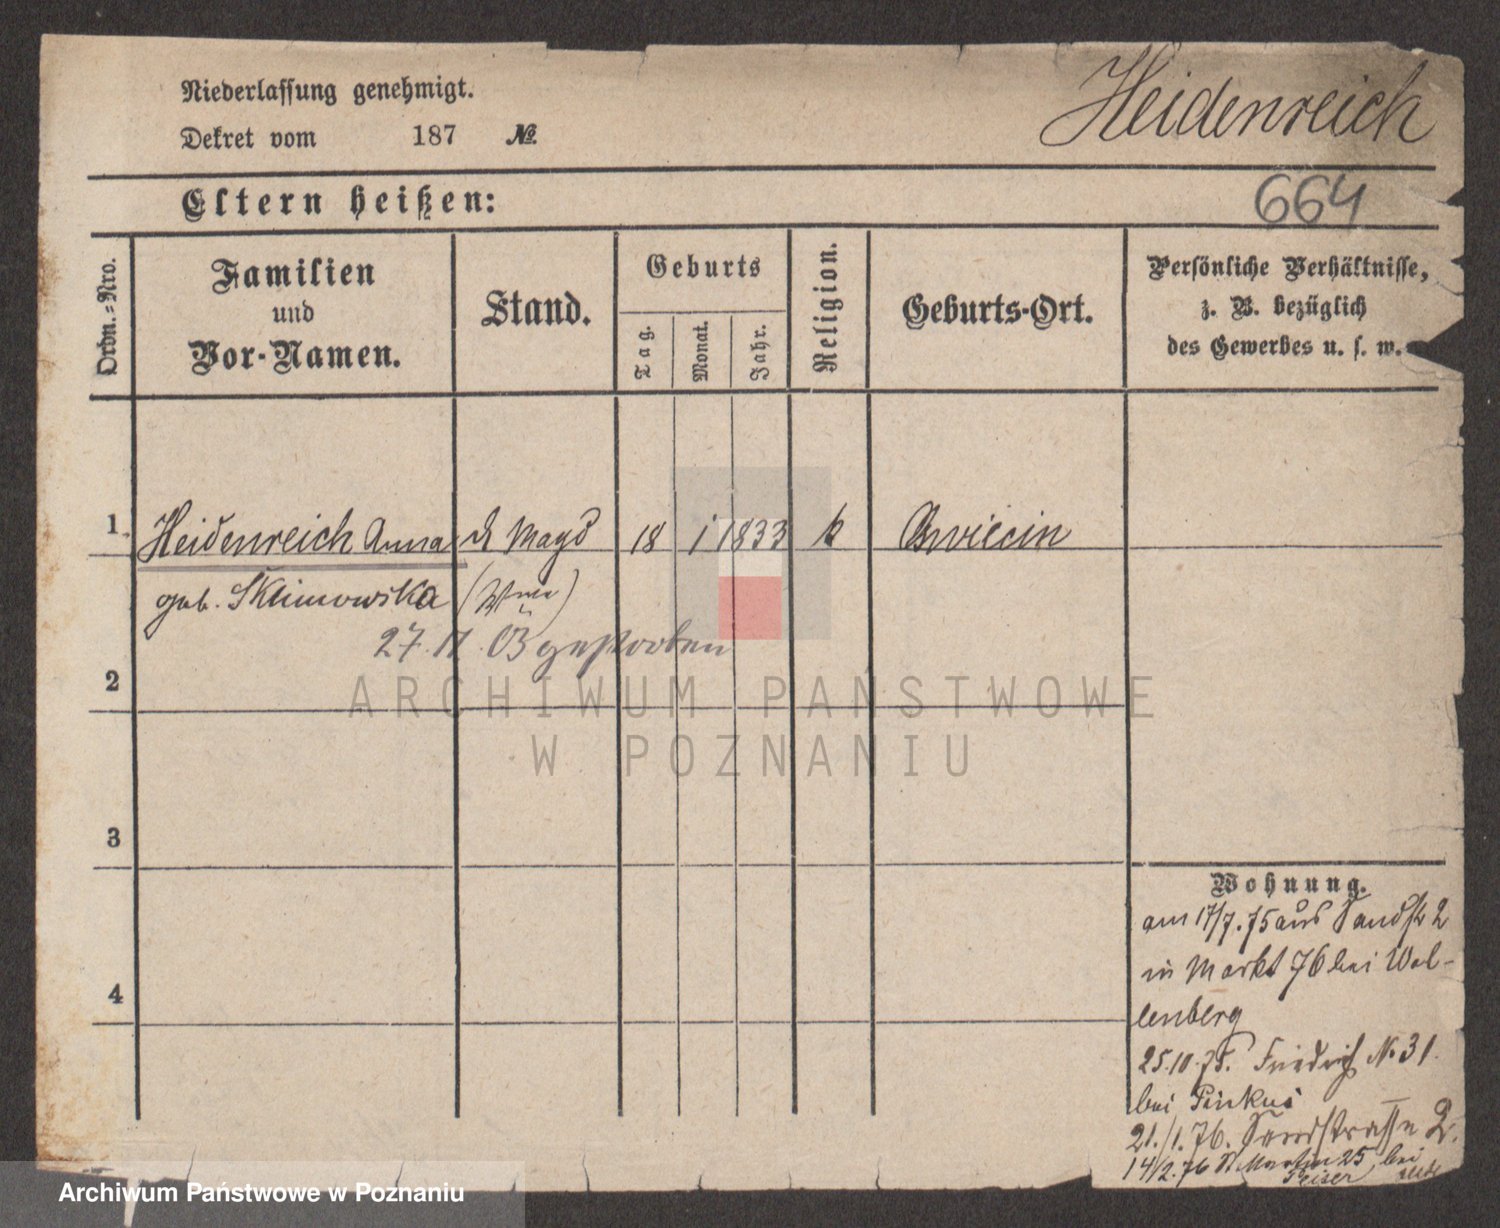 Niederlassung genehmigt.
Dekret vom 187 №
Heidenreich
664
Eltern heißen:
Ordn.=Nro.
Familien
und
Vor-Namen.
Stand.
Geburts
Tag.
Monat.
Jahr.
Religion.
Geburts-Ort.
Persönliche Verhältnisse,
z. B. bezüglich
des Gewerbes u. s. w.
1 Heidenreich Anna d Magd 18 1 1833 k
geb. Sklimowska (Wwe)
27. 11. 03 gestorben
2
3
4
ARCHIWUM PAŃSTWOWE
W POZNANIU
Wohnung.
am 17/7. 75 aus Sandstr 2
in Markt 76 bei Wol-
lenberg
25.10.75. Friedrich No 31.
bei Pinkus
21./1. 76. Sandstrasse 2.
14/2. 76 St Martin 25 bei
Peiser
Archiwum Państwowe w Poznaniu